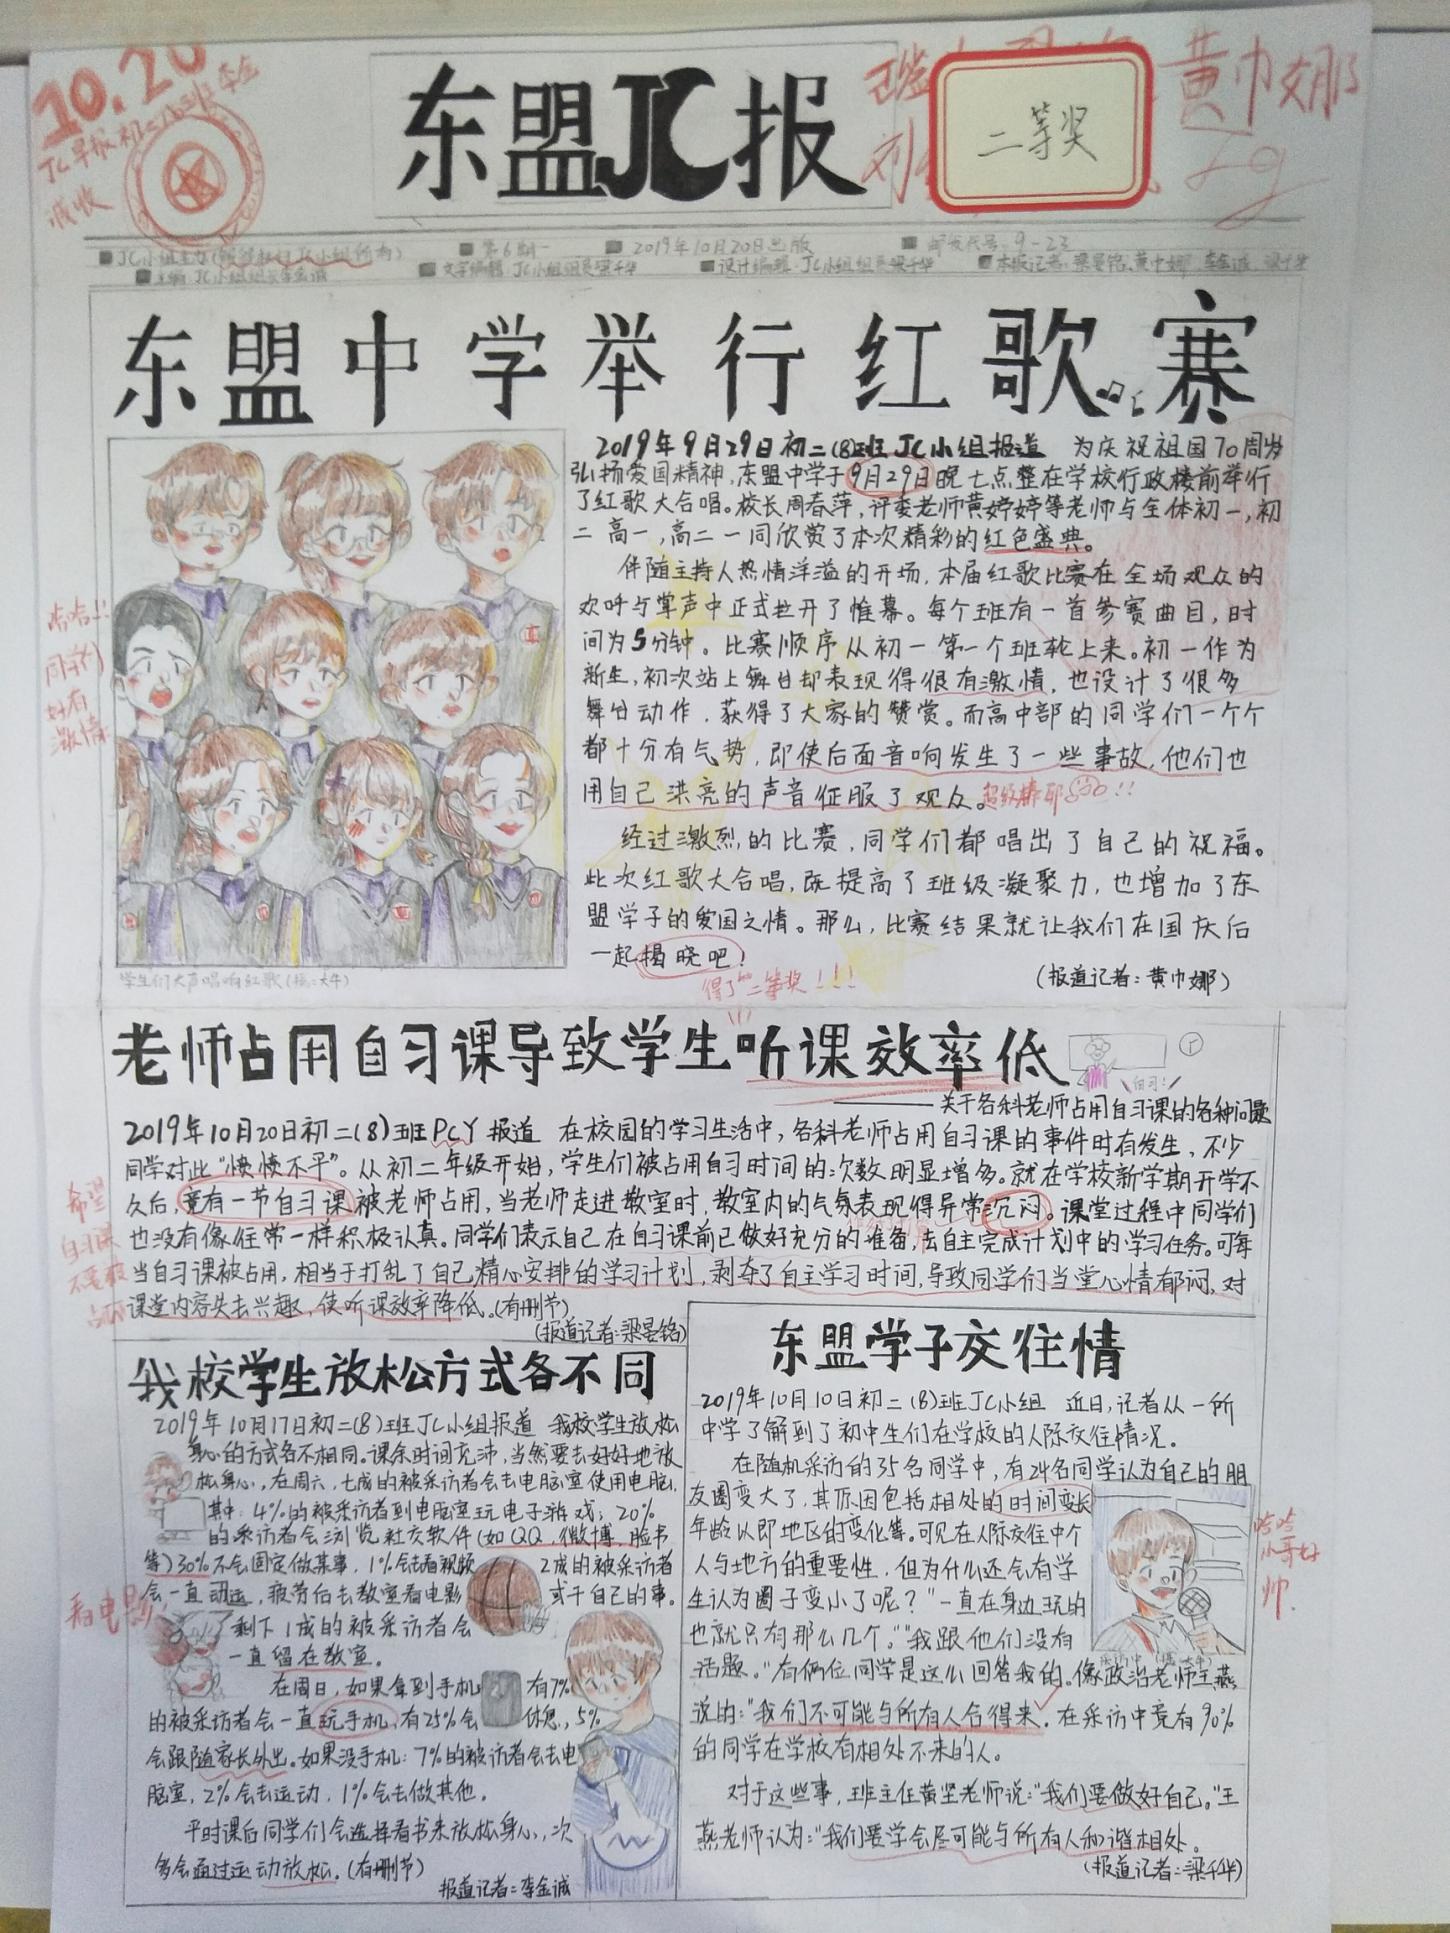 10.20
东盟JC报
黄巾娜
二等奖
第6期
2019年10月20日出版
邮发代号:9-23
主编:JC小组组长李金诚
文字编辑:JC小组组员梁千华
设计编辑:JC小组组员梁千华
本报记者:梁晏铭、黄巾娜、李金诚、梁千华
东盟中学举行红歌赛
2019年9月29日初二(8)班JC小组报道 为庆祝祖国70周岁
弘扬爱国精神,东盟中学于9月29日晚七点整在学校行政楼前举行
了红歌大合唱。校长周春萍,评委老师黄婷婷等老师与全体初一,初
二 高一,高二一同欣赏了本次精彩的红色盛典。
伴随主持人热情洋溢的开场,本届红歌比赛在全场观众的
欢呼与掌声中正式拉开了帷幕。每个班有一首参赛曲目,时
间为5分钟。比赛顺序从初一第一个班轮上来。初一作为
新生,初次站上舞台却表现得很有激情,也设计了很多
舞台动作,获得了大家的赞赏。而高中部的同学们一个个
都十分有气势,即使后面音响发生了一些事故,他们也
用自己洪亮的声音征服了观众。
超级棒耶!!
哈哈!!
同学们
好有
激情
经过激烈的比赛,同学们都唱出了自己的祝福。
此次红歌大合唱,既提高了班级凝聚力,也增加了东
盟学子的爱国之情。那么,比赛结果就让我们在国庆后
一起揭晓吧!
得了二等奖!!!
(报道记者:黄巾娜)
学生们大声唱响红歌
老师占用自习课导致学生听课效率低
——关于各科老师占用自习课的各种问题
2019年10月20日初二(8)班PCY报道 在校园的学习生活中,各科老师占用自习课的事件时有发生,不少
同学对此“愤愤不平”。从初二年级开始,学生们被占用自习时间的次数明显增多。就在学校新学期开学不
久后,竟有一节自习课被老师占用,当老师走进教室时,教室内的气氛表现得异常沉闷。课堂过程中同学们
也没有像往常一样积极认真。同学们表示自己在自习课前已做好充分的准备,去自主完成计划中的学习任务。可每
当自习课被占用,相当于打乱了自己精心安排的学习计划,剥夺了自主学习时间,导致同学们当堂心情郁闷,对
课堂内容失去兴趣,使听课效率降低。(有删节)
(报道记者:梁晏铭)
希望
自习课
不要被
占
我校学生放松方式各不同
2019年10月17日初二(8)班JC小组报道 我校学生放松
身心的方式各不相同。课余时间充沛,当然要去好好地放
松身心,在周六,七成的被采访者会去电脑室使用电脑,
其中:4%的被采访者到电脑室玩电子游戏;20%
的采访者会浏览社交软件(如QQ,微博,脸书
等)30%不会固定做某事,1%会去看视频 2成的被采访者
会一直运动,疲劳后去教室看电影 或干自己的事。
看电影
剩下1成的被采访者会
一直留在教室。
在周日,如果拿到手机 有7%
的被采访者会一直玩手机,有25%会 休息,5%
会跟随家长外出。如果没手机:7%的被访者会去电
脑室,2%会去运动,1%会去做其他。
平时课后同学们会选择看书来放松身心,次
多会通过运动放松。(有删节)
报道记者:李金诚
东盟学子交往情
2019年10月10日初二(8)班JC小组 近日,记者从一所
中学了解到了初中生们在学校的人际交往情况。
在随机采访的35名同学中,有24名同学认为自己的朋
友圈变大了,其原因包括相处的时间变长
年龄以即地区的变化等。可见在人际交往中个
人与地方的重要性,但为什么还会有学
生认为圈子变小了呢?“一直在身边玩的
也就只有那么几个。”“我跟他们没有
话题。”有俩位同学是这么回答我的。像政治老师王燕
说的:“我们不可能与所有人合得来”,在采访中竟有90%
的同学在学校有相处不来的人。
哈哈
小哥好
帅.
对于这些事,班主任黄坚老师说:“我们要做好自己。”王
燕老师认为:“我们要学会尽可能与所有人和谐相处。
(报道记者:梁千华)